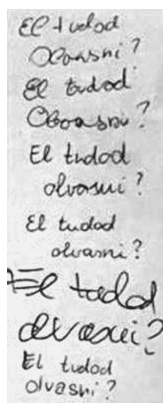 El tudod
Olvasni?
El tudod
Olvasni?
El tudod
olvasni?
El tudod
olvasni?
El tudod
olvasni?
El tudod
olvasni?